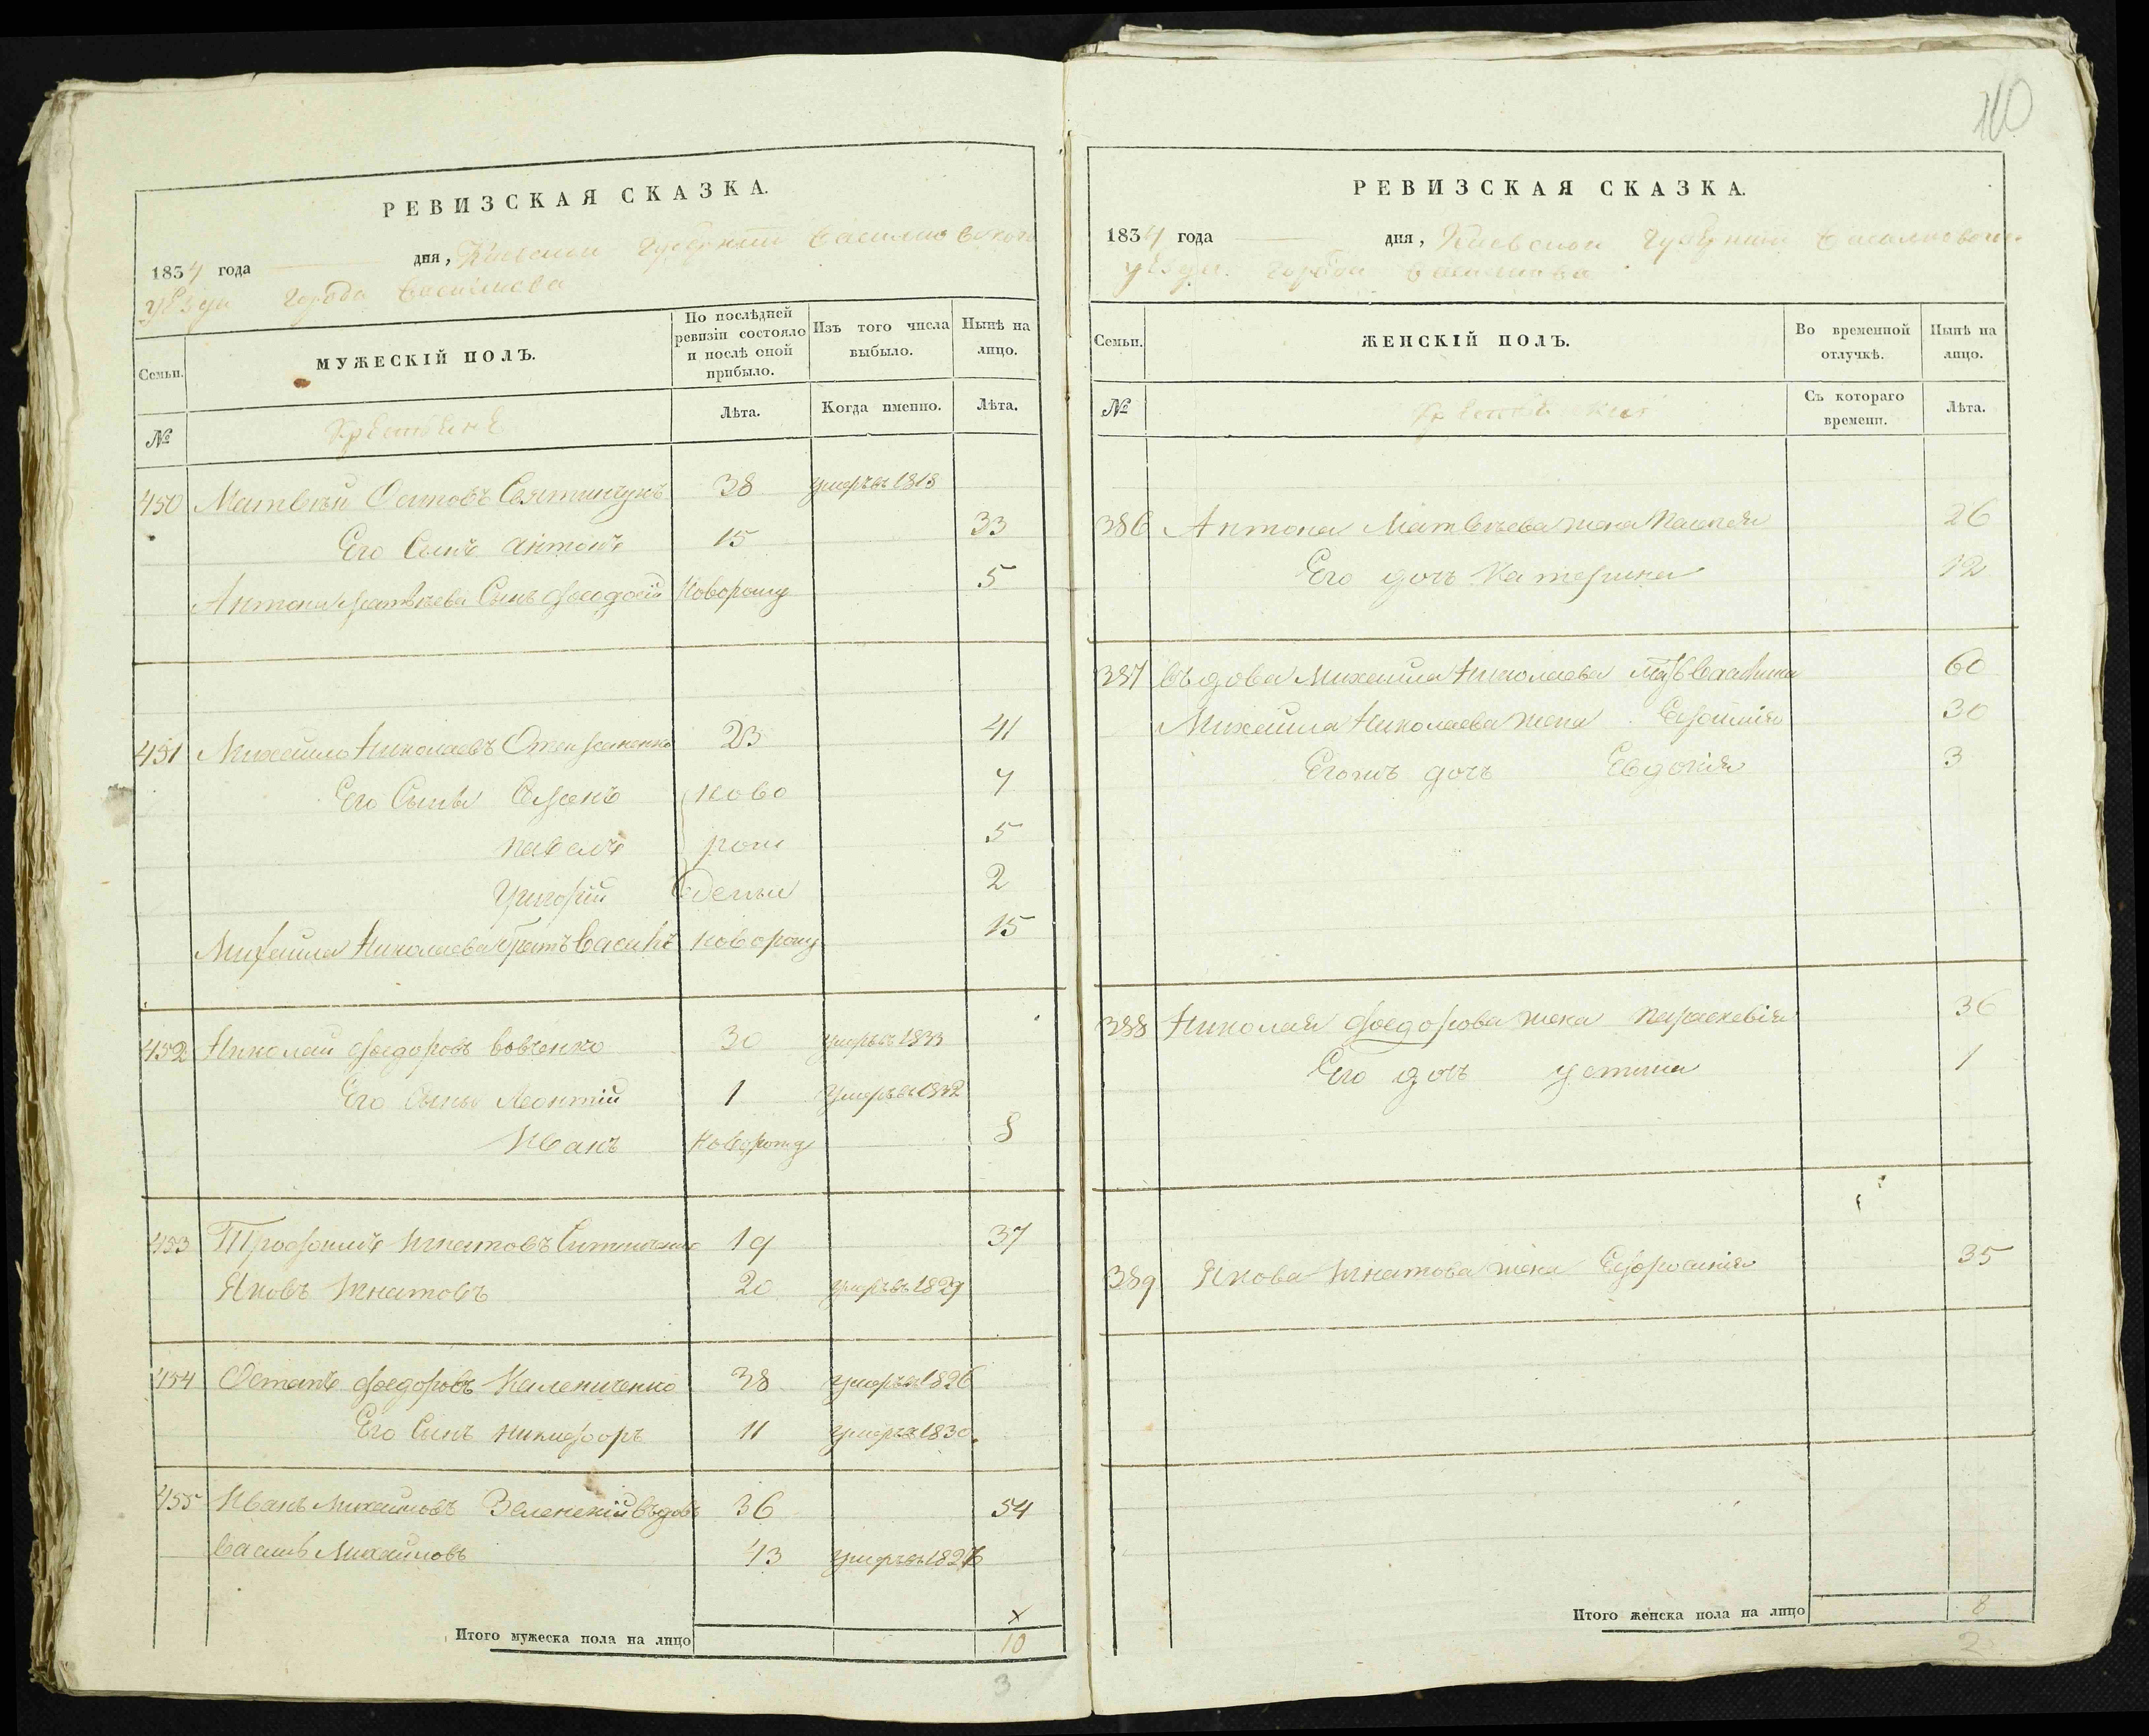 110
РЕВИЗСКАЯ СКАЗКА.
1834 года дня, Киевской Губернии Васильковскаго
уѣзда города Василькова
Семьи.
МУЖЕСКІЙ ПОЛЪ.
По послѣдней ревизіи состояло и послѣ оной прибыло.
Изъ того числа выбыло.
Нынѣ на лицо.
№
Лѣта.
Когда именно.
Лѣта.
450 Матвѣй Осиповъ 38 умеръ въ 1818
Его Сынъ Антонъ 15 33
Антона Матвѣева Сынъ Феодосій Новорожд 5
451 Михайло Николаевъ 23 41
Его Сыны ново 7
Павелъ рож 5
Григорій денные 2
Михайла Николаева братъ новорожд 15
452 Николай Федоровъ Вовченко 30 умеръ въ 1833
Его Сыны Леонтій 1 Умеръ въ 1832
Иванъ Новорожд 8
453 Трофимъ Игнатовъ 19 37
Яковъ Игнатовъ 20 умеръ въ 1829
454 Остапъ Федоровъ Калениченко 38 умеръ въ 1826
Его Сынъ Никифоръ 11 умеръ въ 1830
455 Иванъ Михайловъ Зеленскій вдовъ 36 54
Михайловъ 43 умеръ въ
Итого мужеска пола на лицо
10
3
РЕВИЗСКАЯ СКАЗКА.
1834 года дня, Киевской Губернии
уѣзда города Василькова
Семьи.
ЖЕНСКІЙ ПОЛЪ.
Во временной отлучкѣ.
Нынѣ на лицо.
№
Съ котораго времени.
Лѣта.
386 Антона Матвѣева жена 26
Его дочь Катерина 12
387 Вьдова Михайла Николаева 60
Михайла Николаева жена 30
Егожъ дочь Евдокія 3
388 Николая Федорова жена Параскевія 36
Его дочь Устина 1
389 Якова Игнатова жена Ефросинія 35
Итого женска пола на лицо 8
2